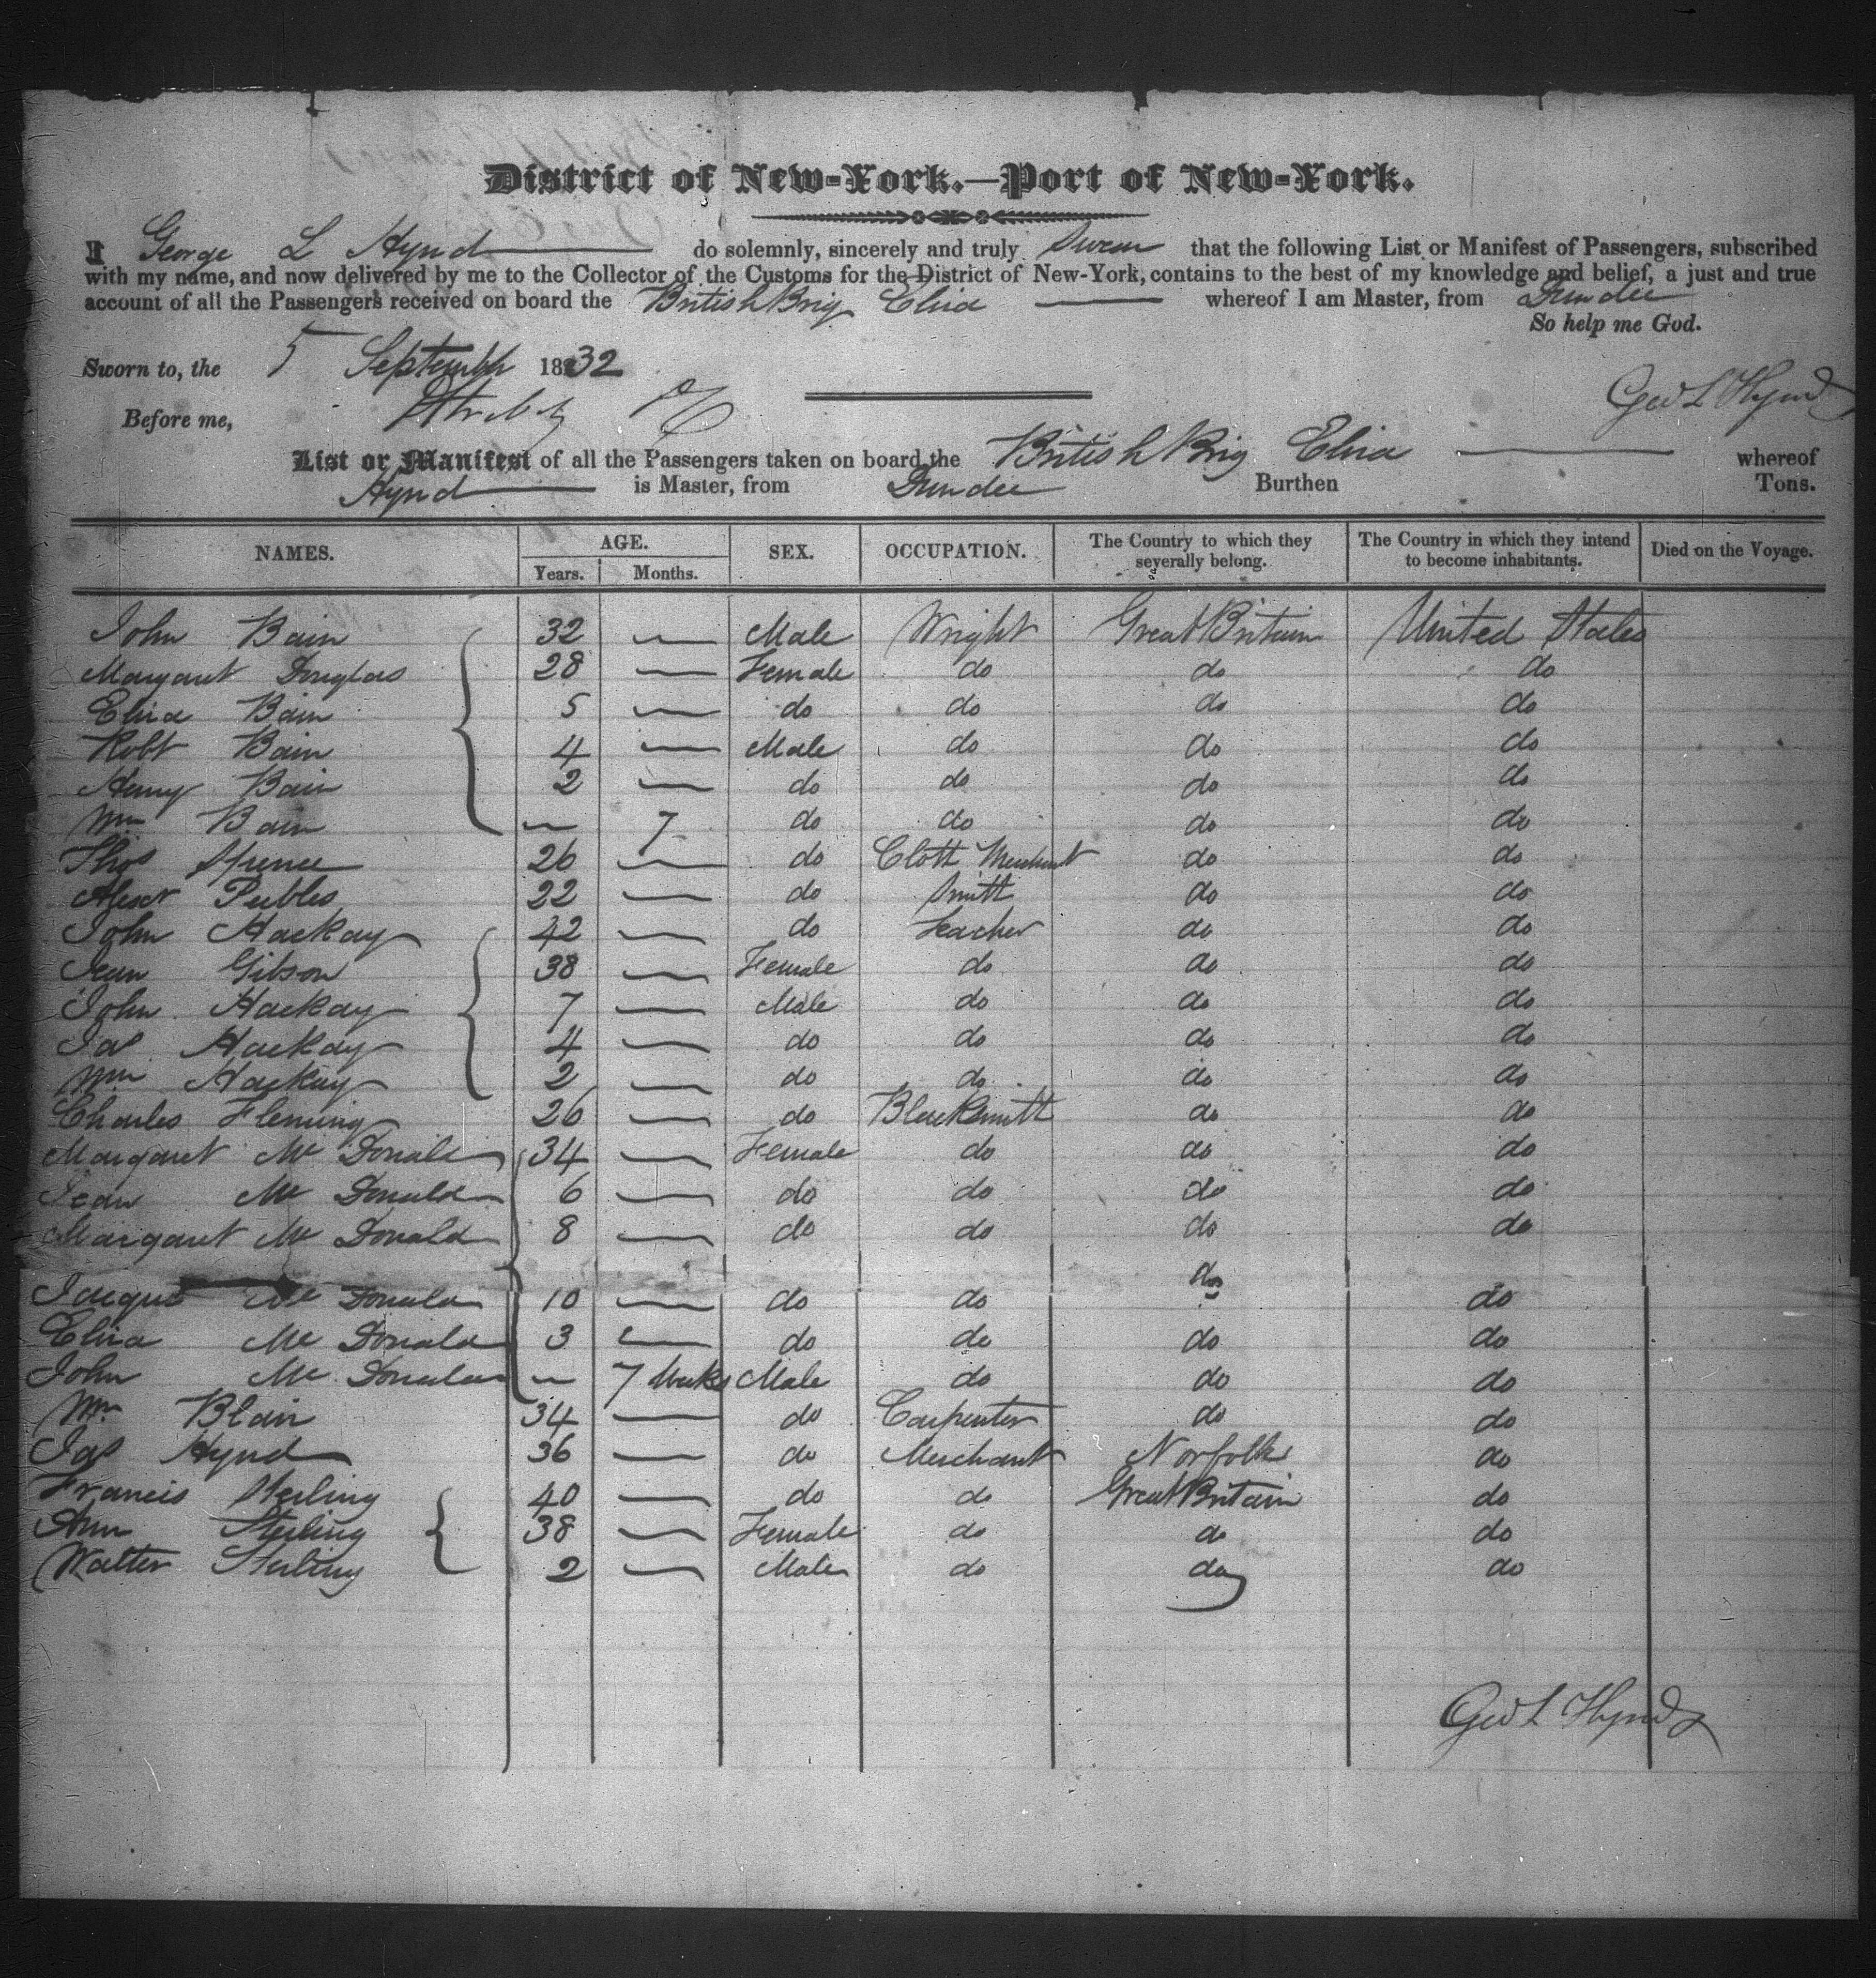 District of New-York.—Port of New-York.
I George L Hynd do solemnly, sincerely and truly Swear that the following List or Manifest of Passengers, subscribed
with my name, and now delivered by me to the Collector of the Customs for the District of New-York, contains to the best of my knowledge and belief, a just and true
account of all the Passengers received on board the British Brig Eliza whereof I am Master, from Dundee
So help me God.
Sworn to, the 5 September 1832
Before me,
Geo L Hynd
List or Manifest of all the Passengers taken on board the British Brig Eliza whereof
Hynd is Master, from Dundee Burthen Tons.
NAMES. AGE. SEX. OCCUPATION. The Country to which they severally belong. The Country in which they intend to become inhabitants. Died on the Voyage.
Years. Months.
John Bain 32 — Male Wright Great Britain United States
Margaret Douglas 28 — Female do do do
Eliza Bain 5 — do do do do
Robt Bain 4 — Male do do do
Henry Bain 2 — do do do do
Wm Bain — 7 do do do do
Thos Spence 26 — do Cloth Merchant do do
Alexr Peebles 22 — do Smith do do
John Mackay 42 — do Teacher do do
Jean Gibson 38 — Female do do do
John Mackay 7 — Male do do do
Jas Mackay 4 — do do do do
Wm Mackay 2 — do do do do
Charles Fleming 26 — do Blacksmith do do
Margaret Mc Donald 34 — Female do do do
Jean Mc Donald 6 — do do do do
Margaret Mc Donald 8 — do do do do
Mc Donald 10 — do do do do
Eliza Mc Donald 3 — do do do do
John Mc Donald — 7 Weeks Male do do do
Wm Blair 34 — do Carpenter do do
Jas Hynd 36 — do Merchant Norfolk do
Francis Sterling 40 — do do Great Britain do
Ann Sterling 38 — Female do do do
Walter Sterling 2 — Male do do do
Geo L Hynd